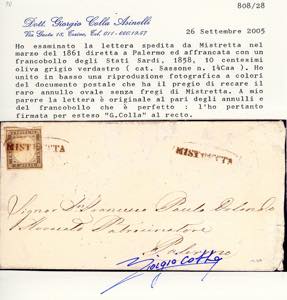 808/28
Dott. Giorgio Colla Asinelli
Via Gusto 18, Torino, Tel. 011-
26 Settembre 2005
Ho esaminato la lettera spedita da Mistretta nel
marzo del 1861 diretta a Palermo ed affrancata con un
francobollo degli Stati Sardi, 1858, 10 centesimi
oliva grigio verdastro ( cat. Sassone n. 14Caa ). Ho
unito in basso una riproduzione fotografica a colori
del documento postale che ha il pregio di recare il
raro annullo ovale senza fregi di Mistretta. A mio
parere la lettera è originale al pari degli annulli e
del francobollo che è perfetto : l'ho pertanto
firmata per esteso "G.Colla" al recto.
MISTRETTA
MISTRETTA
Palermo
Giorgio Colla